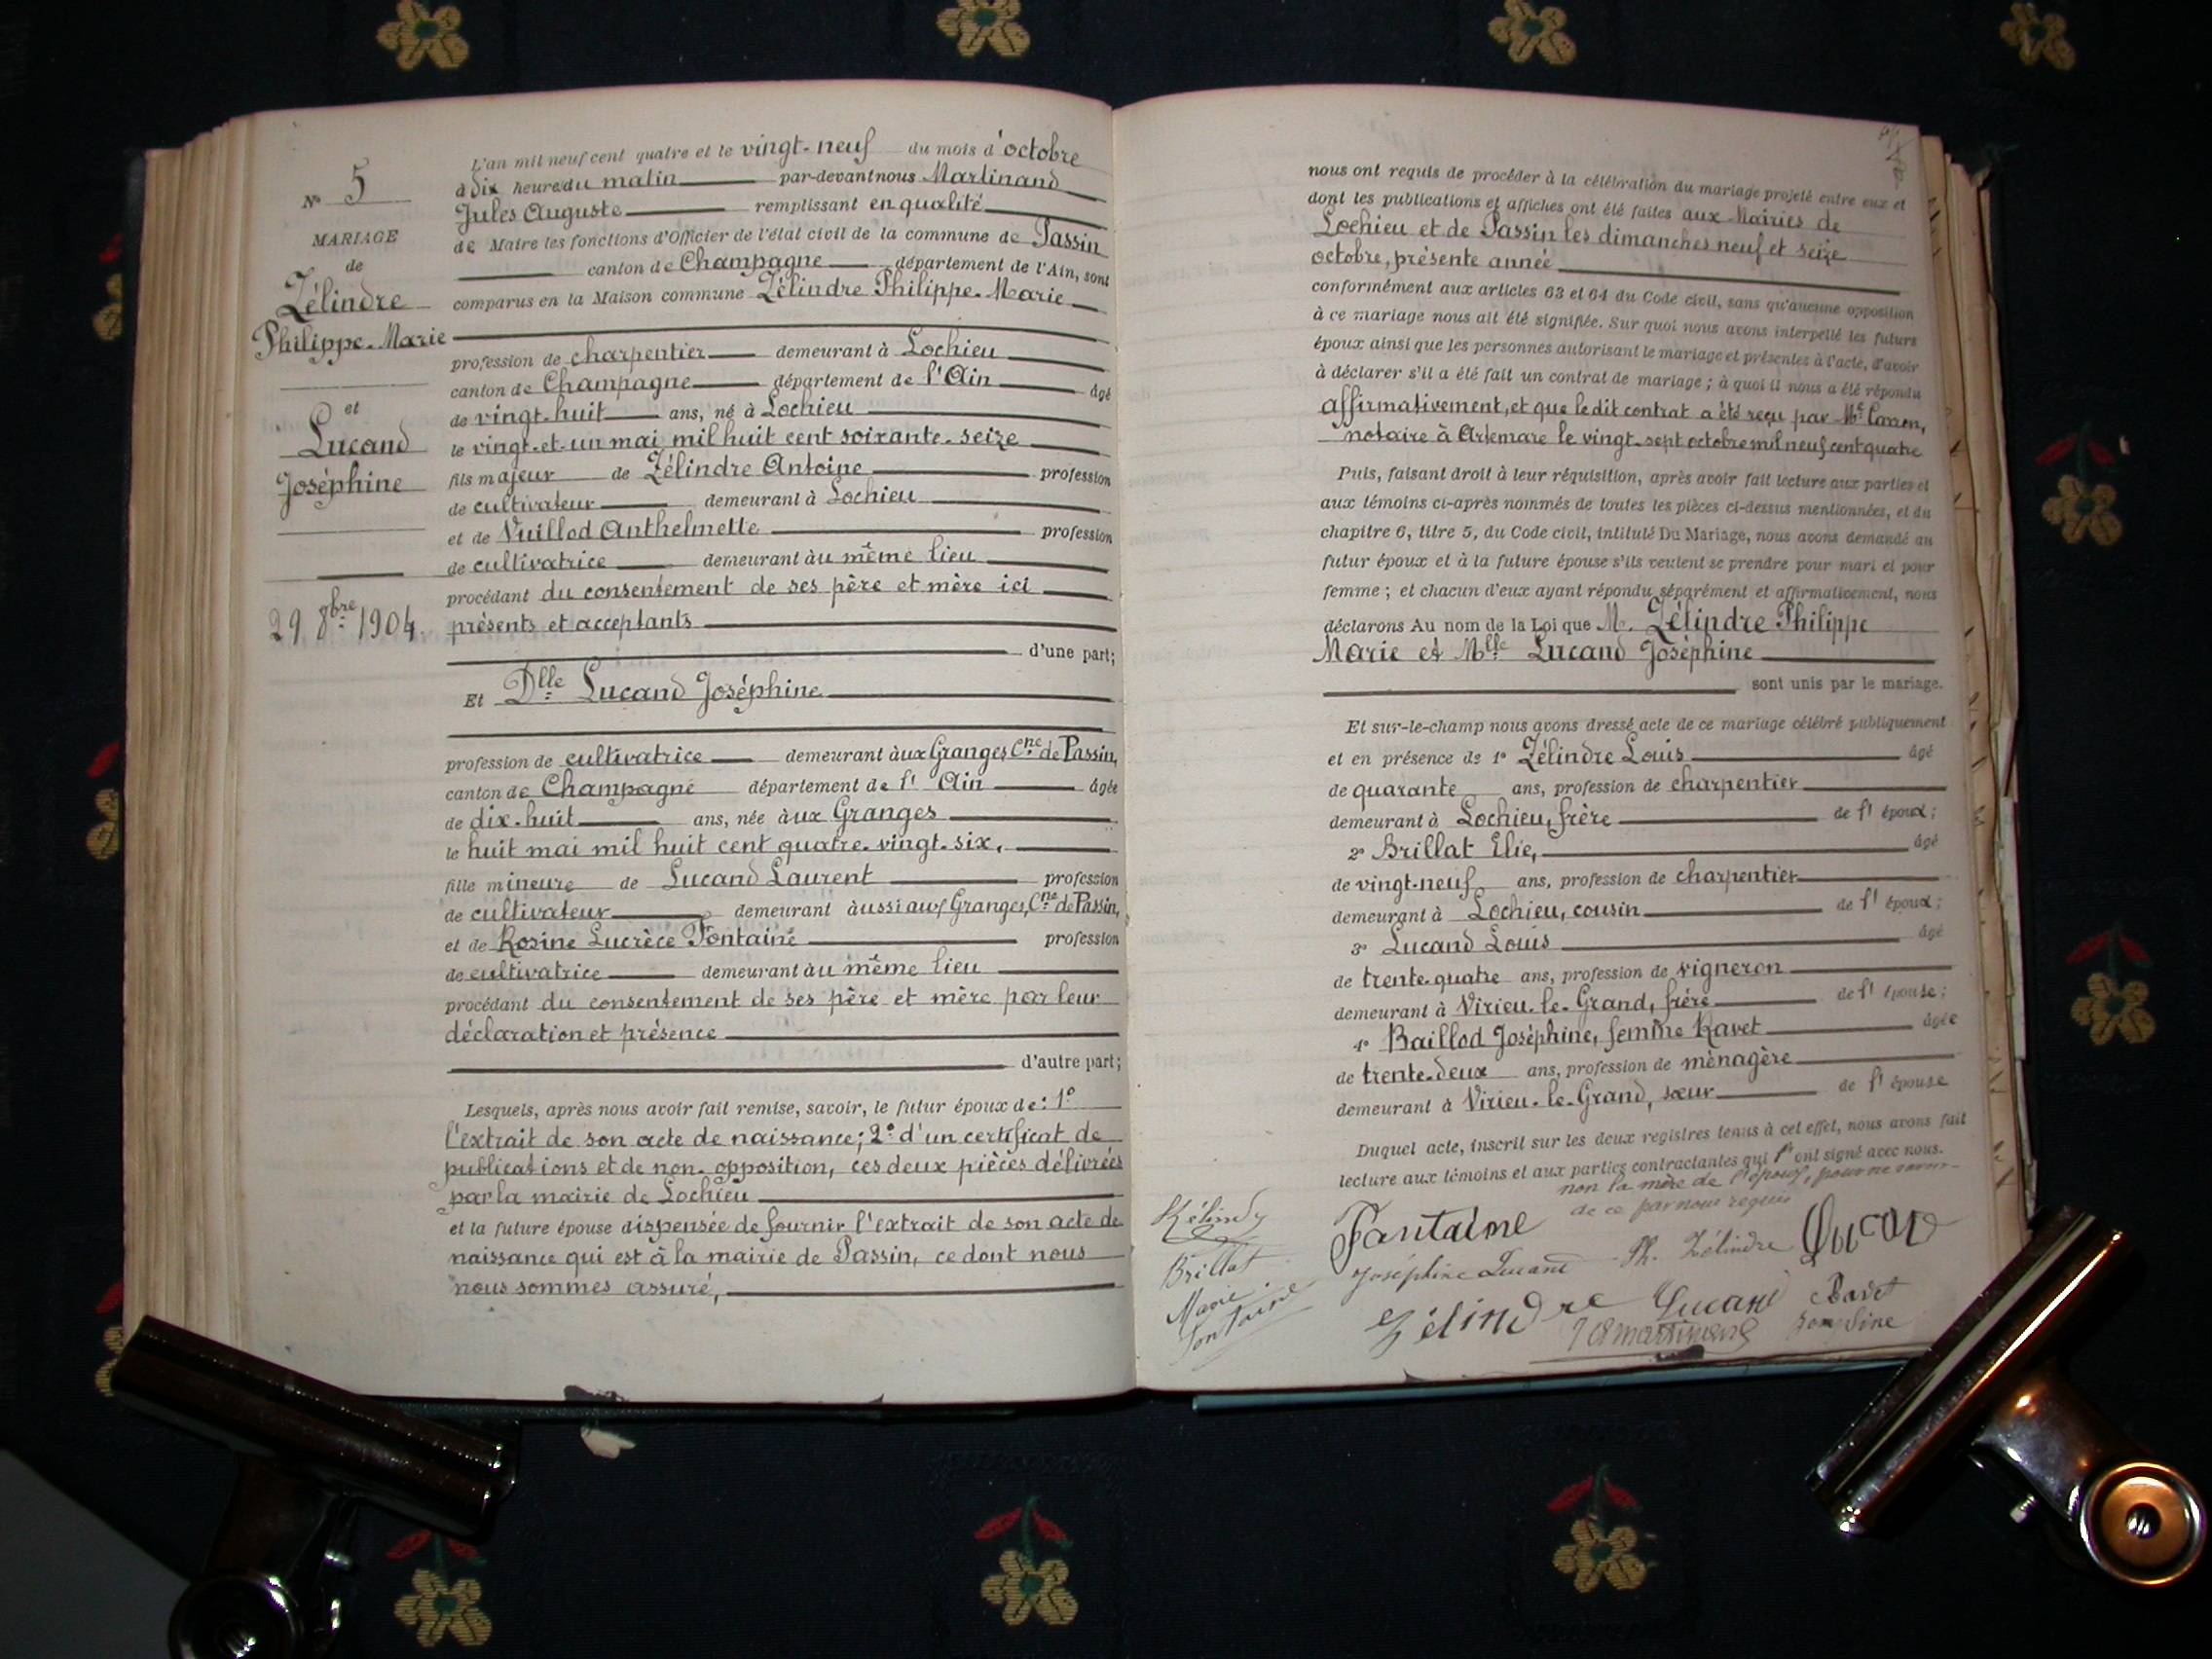 N° 5
MARIAGE
de
Zélindre
Philippe-Marie
et
Lucand
Joséphine
29 8bre 1904.
L'an mil neuf cent quatre et le vingt-neuf du mois d'octobre
à dix heures du matin par-devant nous Martinand
Jules Auguste remplissant en qualité
de Maire les fonctions d'Officier de l'état civil de la commune de Passin
canton de Champagne département de l'Ain, sont
comparus en la Maison commune Zélindre Philippe-Marie
profession de charpentier demeurant à Lochieu
canton de Champagne département de l'Ain âgé
de vingt-huit ans, né à Lochieu
le vingt-et-un mai mil huit cent soixante-seize
fils majeur de Zélindre Antoine profession
de cultivateur demeurant à Lochieu
et de Vuillod Anthelmette profession
de cultivatrice demeurant àu même lieu
procédant du consentement de ses père et mère ici
présents et acceptants
d'une part;
Et Dlle Lucand Joséphine
profession de cultivatrice demeurant àux Granges Cne de Passin,
canton de Champagne département de l'Ain âgée
de dix-huit ans, née àux Granges
le huit mai mil huit cent quatre-vingt-six,
fille mineure de Lucand Laurent profession
de cultivateur demeurant àussi aux Granges, Cne de Passin,
et de Rosine Lucrèce Fontaine profession
de cultivatrice demeurant àu même lieu
procédant du consentement de ses père et mère par leur
déclaration et présence
d'autre part;
Lesquels, après nous avoir fait remise, savoir, le futur époux de: 1°
l'extrait de son acte de naissance; 2° d'un certificat de
publications et de non-opposition, ces deux pièces délivrées
par la mairie de Lochieu
et la future épouse dispensée de fournir l'extrait de son acte de
naissance qui est à la mairie de Passin, ce dont nous
nous sommes assuré,
nous ont requis de procéder à la célébration du mariage projeté entre eux et
dont les publications et affiches ont été faites aux Mairies de
Lochieu et de Passin les dimanches neuf et seize
octobre, présente année
conformément aux articles 63 et 64 du Code civil, sans qu'aucune opposition
à ce mariage nous ait été signifiée. Sur quoi nous avons interpellé les futurs
époux ainsi que les personnes autorisant le mariage et présentes à l'acte, d'avoir
à déclarer s'il a été fait un contrat de mariage; à quoi il nous a été répondu
affirmativement, et que le dit contrat a été reçu par Me Carron,
notaire à Artemare le vingt-sept octobre mil neuf cent quatre
Puis, faisant droit à leur réquisition, après avoir fait lecture aux parties et
aux témoins ci-après nommés de toutes les pièces ci-dessus mentionnées, et du
chapitre 6, titre 5, du Code civil, intitulé Du Mariage, nous avons demandé au
futur époux et à la future épouse s'ils veulent se prendre pour mari et pour
femme; et chacun d'eux ayant répondu séparément et affirmativement, nous
déclarons Au nom de la Loi que M. Zélindre Philippe
Marie et Mlle Lucand Joséphine
sont unis par le mariage.
Et sur-le-champ nous avons dressé acte de ce mariage célébré publiquement
et en présence de 1° Zélindre Louis âgé
de quarante ans, profession de charpentier
demeurant à Lochieu, frère de l'époux;
2° Brillat Élie, âgé
de vingt-neuf ans, profession de charpentier
demeurant à Lochieu, cousin de l'époux;
3° Lucand Louis âgé
de trente-quatre ans, profession de vigneron
demeurant à Virieu-le-Grand, frère de l'épouse;
4° Baillod Joséphine, femme Ravet âgée
de trente-deux ans, profession de ménagère
demeurant à Virieu-le-Grand, sœur de l'épouse
Duquel acte, inscrit sur les deux registres tenus à cet effet, nous avons fait
lecture aux témoins et aux parties contractantes qui l'ont signé avec nous.
non la mère de l'époux, pour ne savoir
de ce par nous requis
Zélindre
Fontaine
Lucand
Brillat
Joséphine Lucand
Ph. Zélindre
Marie
Fontaine
Zélindre
Lucand
Ravet
Joséphine